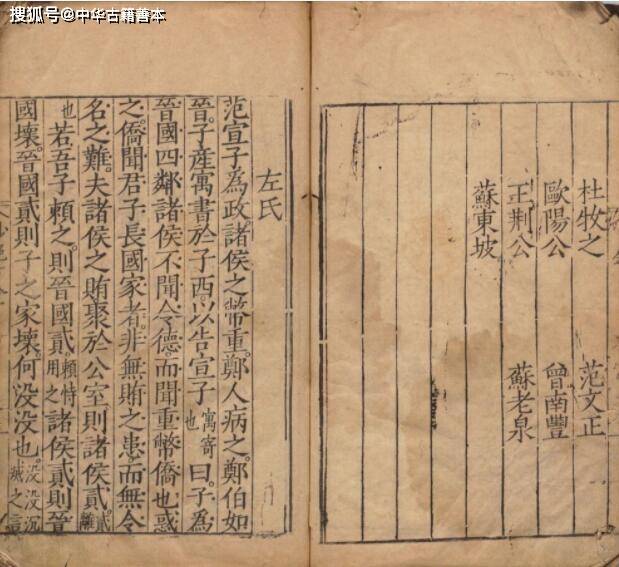 搜狐号@中华古籍善本
杜牧之 范文正
歐陽公 曾南豐
王荆公 蘇老泉
蘇東坡
左氏
范宣子為政。諸侯之幣重。鄭人病之。鄭伯如
晉。子産寓書於子西。以告宣子寓寄也曰。子為
晉國四鄰諸侯不聞令德。而聞重幣僑也惑
之。僑聞君子長國家者。非無賄之患而無令
名之難。夫諸侯之賄聚於公室則諸侯貳。貳離
也若吾子賴之。則晉國貳。賴恃用之諸侯貳則晉
國壞。晉國貳則子之家壞。何没没也。没没沉㓕之言